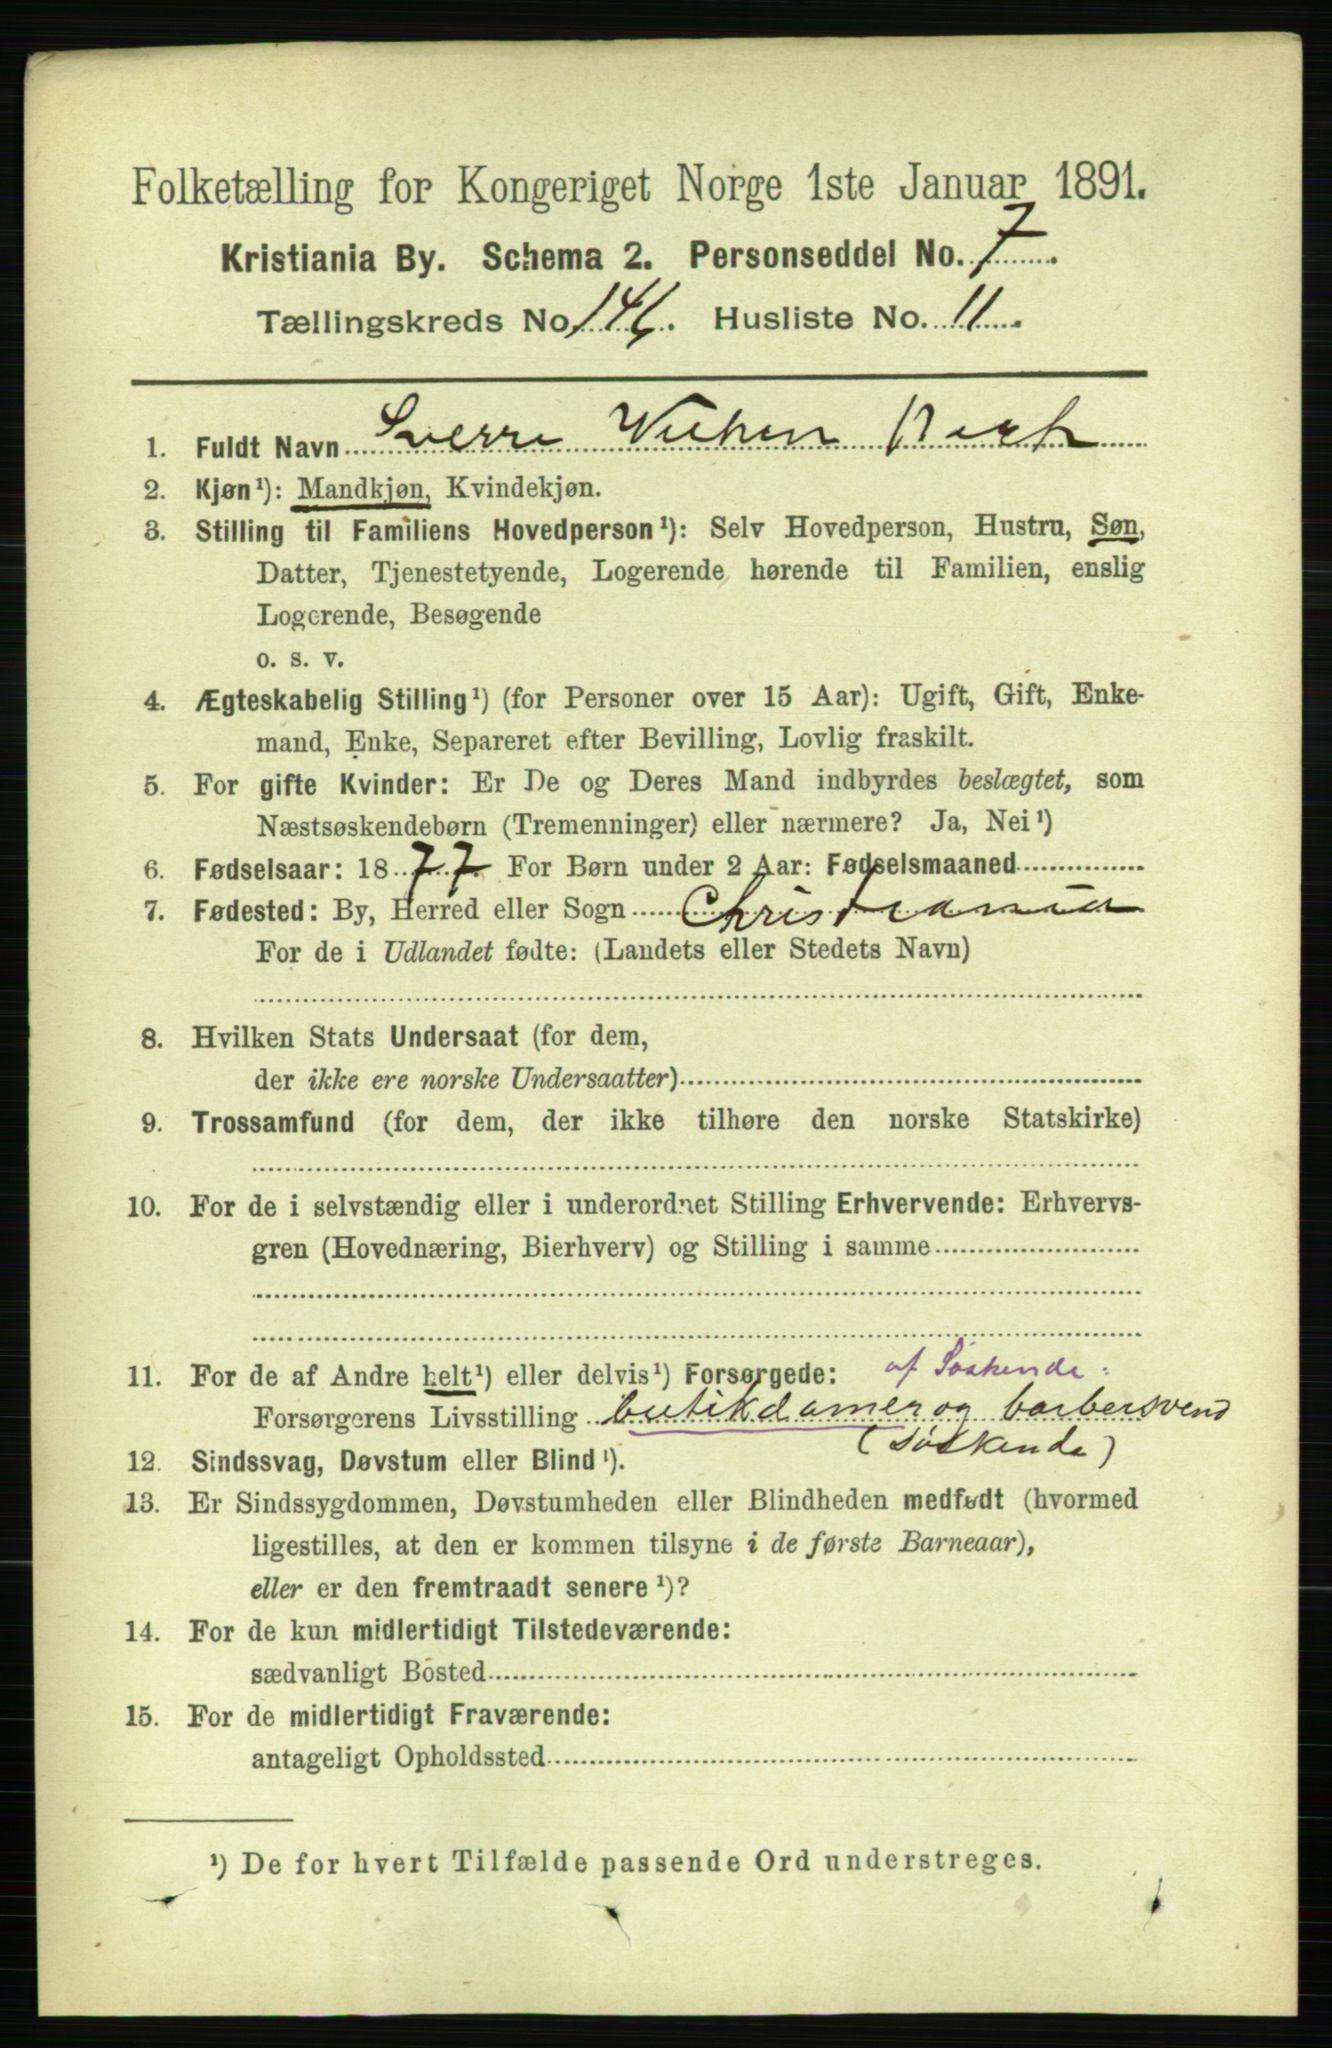 Folketælling for Kongeriget Norge 1ste Januar 1891.
Kristiania By. Schema 2. Personseddel No. 7.
Tællingskreds No. 146. Husliste No. 11.
1. Fuldt Navn Sverre
2. Kjøn¹): Mandkjøn, Kvindekjøn.
3. Stilling til Familiens Hovedperson¹): Selv Hovedperson, Hustru, Søn,
Datter, Tjenestetyende, Logerende hørende til Familien, enslig
Logerende, Besøgende
o. s. v.
4. Ægteskabelig Stilling¹) (for Personer over 15 Aar): Ugift, Gift, Enke-
mand, Enke, Separeret efter Bevilling, Lovlig fraskilt.
5. For gifte Kvinder: Er De og Deres Mand indbyrdes beslægtet, som
Næstsøskendebørn (Tremenninger) eller nærmere? Ja, Nei¹)
6. Fødselsaar: 1877. For Børn under 2 Aar: Fødselsmaaned
7. Fødested: By, Herred eller Sogn Christiania
For de i Udlandet fødte: (Landets eller Stedets Navn)
8. Hvilken Stats Undersaat (for dem,
der ikke ere norske Undersaatter)
9. Trossamfund (for dem, der ikke tilhøre den norske Statskirke)
10. For de i selvstændig eller i underordnet Stilling Erhvervende: Erhvervs-
gren (Hovednæring, Bierhverv) og Stilling i samme
11. For de af Andre helt¹) eller delvis¹) Forsørgede: af Søskende:
Forsørgerens Livsstilling butikdamer og barbersvend
(søskende)
12. Sindssvag, Døvstum eller Blind¹).
13. Er Sindssygdommen, Døvstumheden eller Blindheden medfødt (hvormed
ligestilles, at den er kommen tilsyne i de første Barneaar),
eller er den fremtraadt senere¹)?
14. For de kun midlertidigt Tilstedeværende:
sædvanligt Bosted
15. For de midlertidigt Fraværende:
antageligt Opholdssted
¹) De for hvert Tilfælde passende Ord understreges.